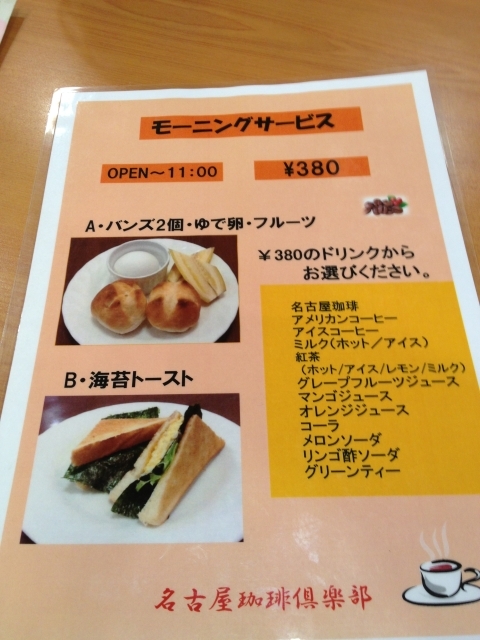 モーニングサービス
OPEN～11:00
¥380
A・バンズ2個・ゆで卵・フルーツ
¥380のドリンクから
お選びください。
名古屋珈琲
アメリカンコーヒー
アイスコーヒー
ミルク(ホット/アイス)
紅茶
(ホット/アイス/レモン/ミルク)
グレープフルーツジュース
マンゴジュース
オレンジジュース
コーラ
メロンソーダ
リンゴ酢ソーダ
グリーンティー
B・海苔トースト
名古屋珈琲倶楽部